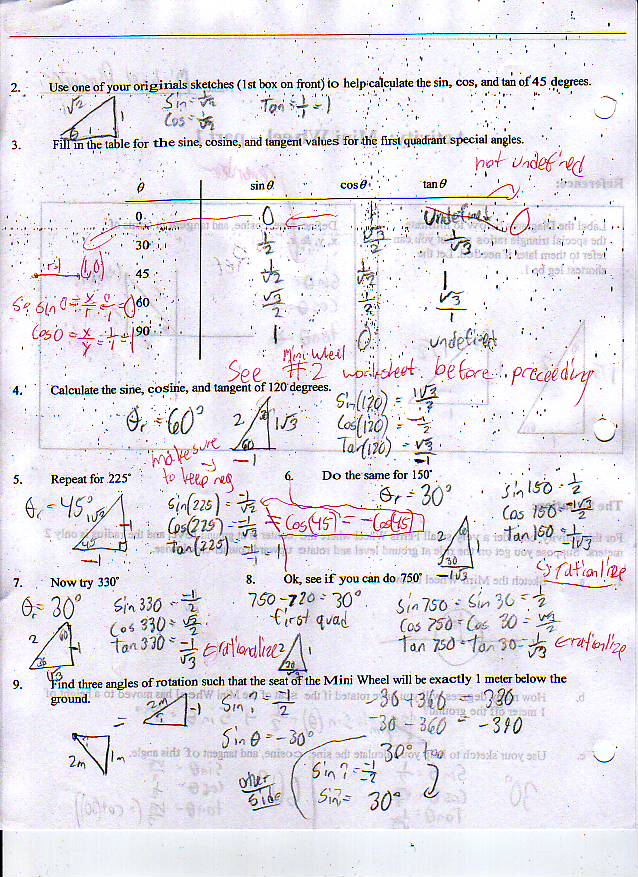 2. Use one of your originals sketches (1st box on front) to help calculate the sin, cos, and tan of 45 degrees.
√2 1 1 Sin = 1/√2 Tan = 1/1 = 1
Cos = 1/√2
3. Fill in the table for the sine, cosine, and tangent values for the first quadrant special angles.
not undefined
θ sin θ cos θ tan θ
0 0 1 Undefined 0
30 1/2 √3/2 1/√3
(1,0) 45 1/√2 1/√2 1
60 √3/2 1/2 √3/1
90 1 0 undefined
See Mini wheel #2 worksheet before preceeding
4. Calculate the sine, cosine, and tangent of 120 degrees.
θr = 60° 2 1√3 60 -1
Sin(120) = 1√3/2
Cos(120) = -1/2
Tan(120) = √3/-1
make sure to keep neg
5. Repeat for 225°
θr = 45° 1√2 45 -1 -1
Sin(225) = -1/√2
Cos(225) = -1/√2 = Cos(45) = -Cos(45)
Tan(225) = -1/-1
6. Do the same for 150°
θr = 30° 2 1 30 -1√3
Sin 150 = 1/2
Cos 150 = -1√3/2
Tan 150 = 1/-1√3
rationlize
7. Now try 330°
θr = 30° 2 60 -1 30 √3
Sin 330 = -1/2
Cos 330 = √3/2
tan 330 = -1/√3 rationalize
8. Ok, see if you can do 750°
750-720 = 30°
first quad
2 1 30
Sin 750 = Sin 30 = 1/2
Cos 750 = Cos 30 = √3/2
tan 750 = tan 30 = 1/√3 rationlize
9. Find three angles of rotation such that the seat of the Mini Wheel will be exactly 1 meter below the
ground.
2m 1m = 2m -1
Sin = -1/2
Sin θ = -30°
-30 + 360 = 330
-30 - 360 = -390
other side
30° too
Sin = -1/-2
Sin = 30°